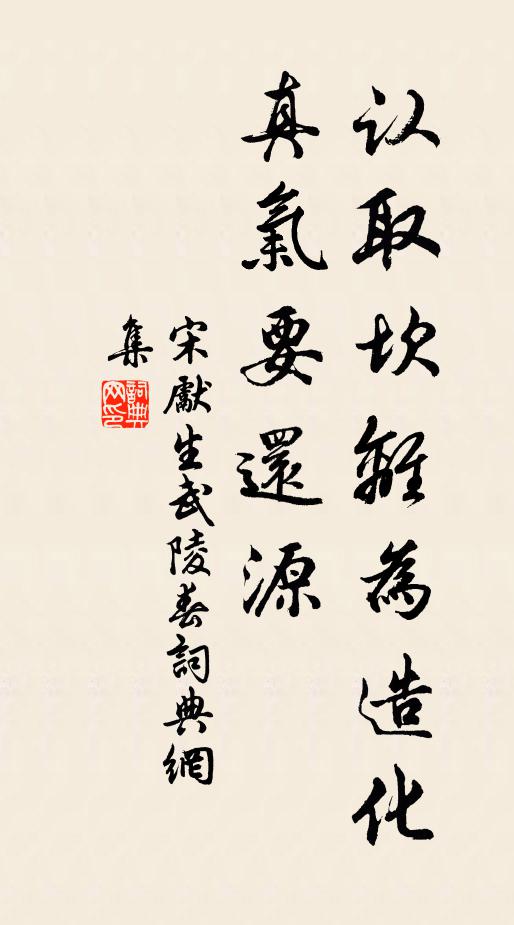 认取坎離為造化
真氣要還源
宋獻生武陵春詞典網
集
詞典
网印